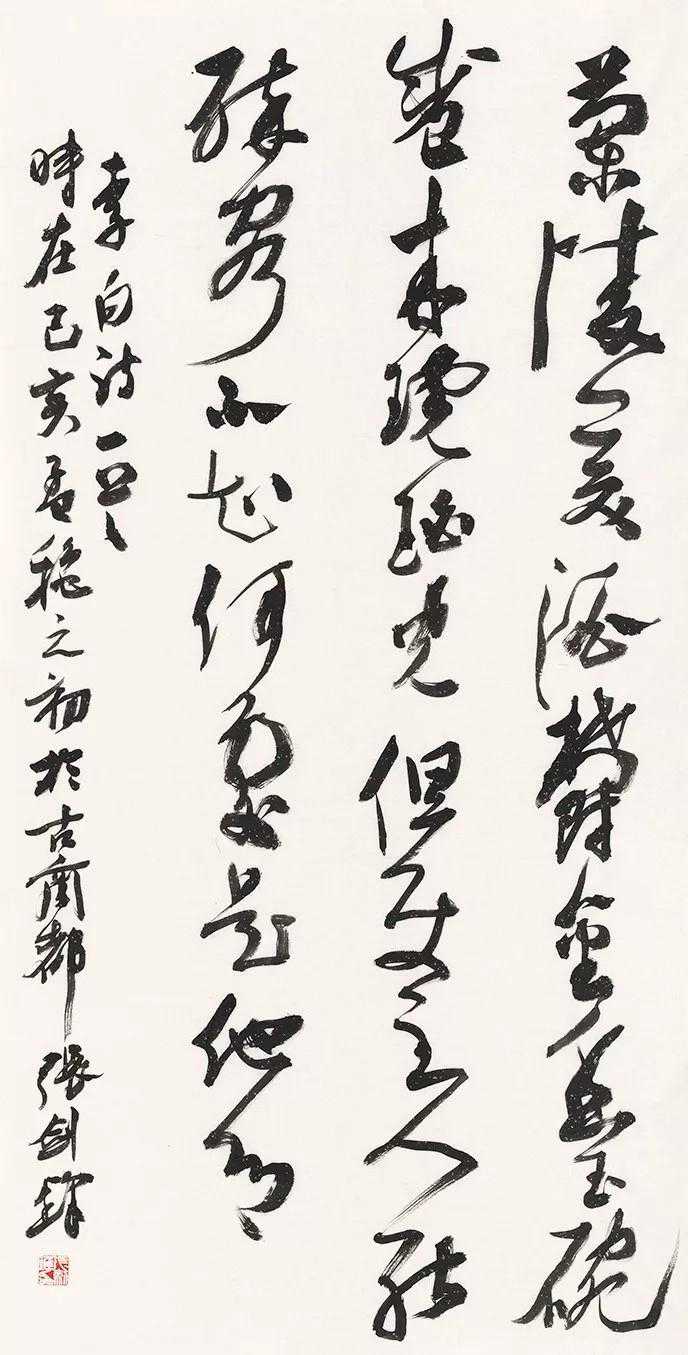 蘭陵美酒鬱金香玉碗
盛来琥珀光但使主人能
醉客不知何處是他鄉
李白詩一首
時在己亥孟穐之初於古商都 張劍